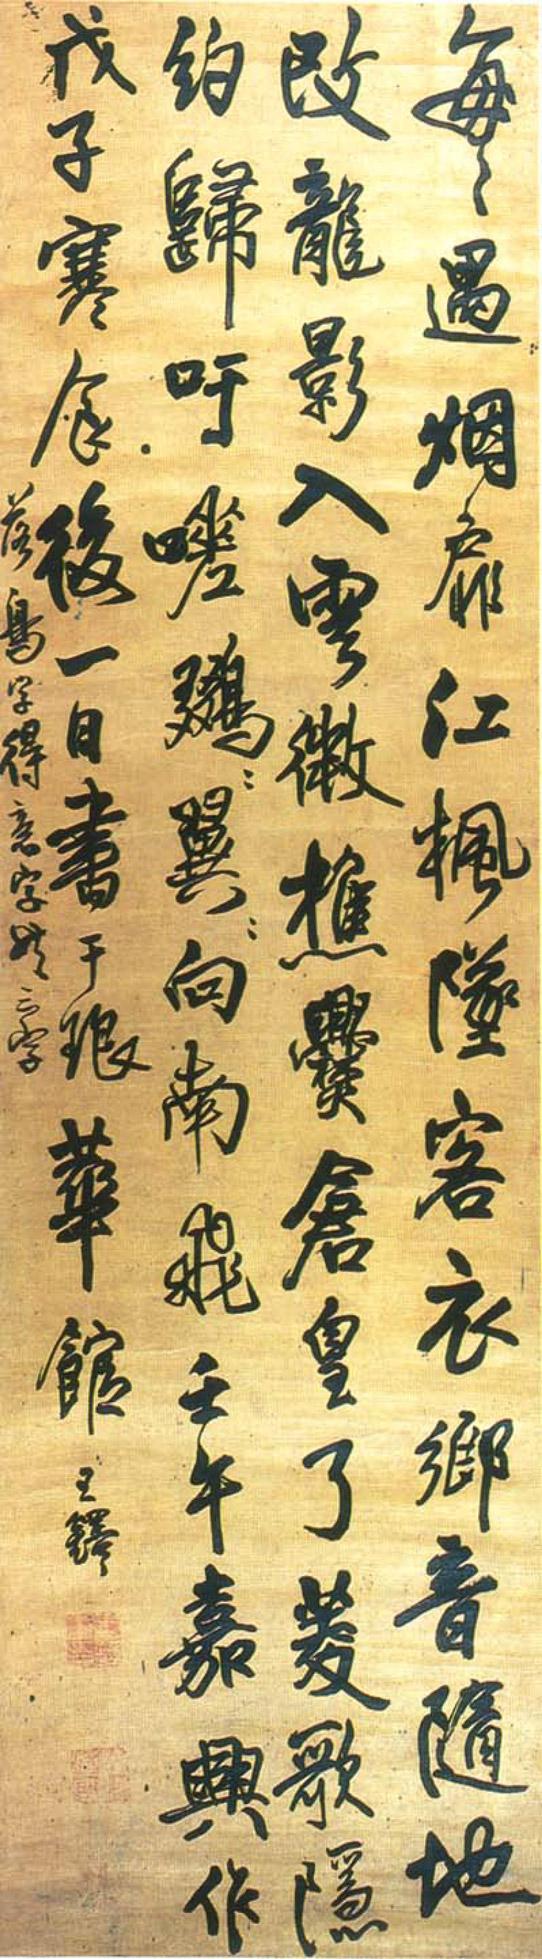 每〻遇烟扉江楓墜客衣鄉音隨地
改龍影入雲微樵爨倉皇了菱歌隱
約歸吁嗟鷄〻翼〻向南飛壬午嘉興作
戊子寒食後一日書于琅華館王鐸
落鳥字得意字共三字